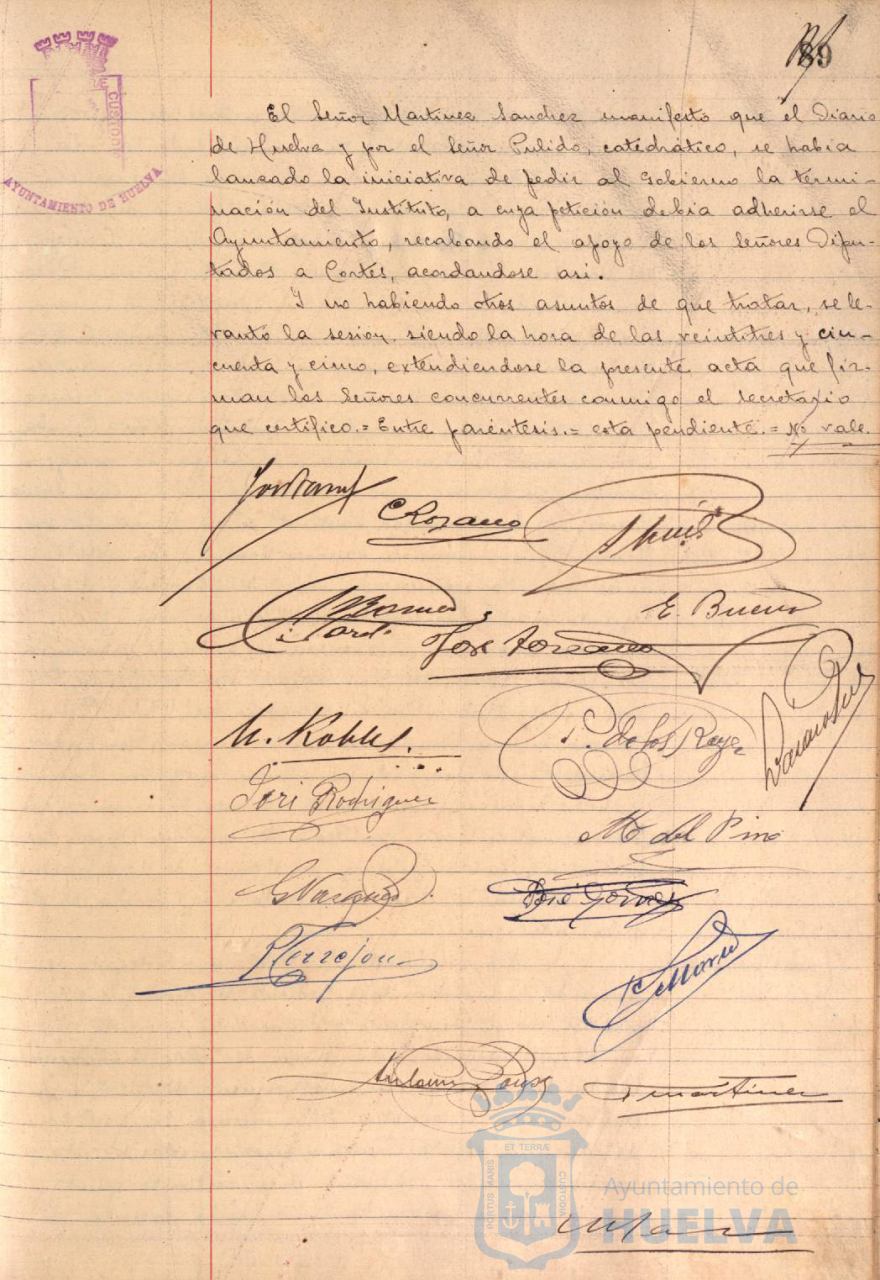 89
CUSTODI
AYUNTAMIENTO DE HUELVA
El Señor Martinez Sanchez manifestó que el Diario
de Huelva y por el Señor Pulido, catedrático, se habia
lanzado la iniciativa de pedir al Gobierno la termi-
nación del Instituto, a cuya petición debia adherirse el
Ayuntamiento, recabando el apoyo de los Señores Dipu-
tados a Cortes, acordandose asi.
Y no habiendo otros asuntos de que tratar, se le-
vantó la sesion, siendo la hora de las veintitres y cin-
cuenta y cinco, extendiendose la presente acta que fir-
man los Señores concurrentes conmigo el secretario
que certifico.= Entre paréntesis.= esta pendiente.= No vale.
E. Bueno
M. Robles.
P. de los Reyes
José Rodriguez
M. del Pino
G Vazquez
José Gomez
P. Terrejon
Martinez
ET TERRÆ
PORTUS MARIS
CUSTODIA
Ayuntamiento de
HUELVA